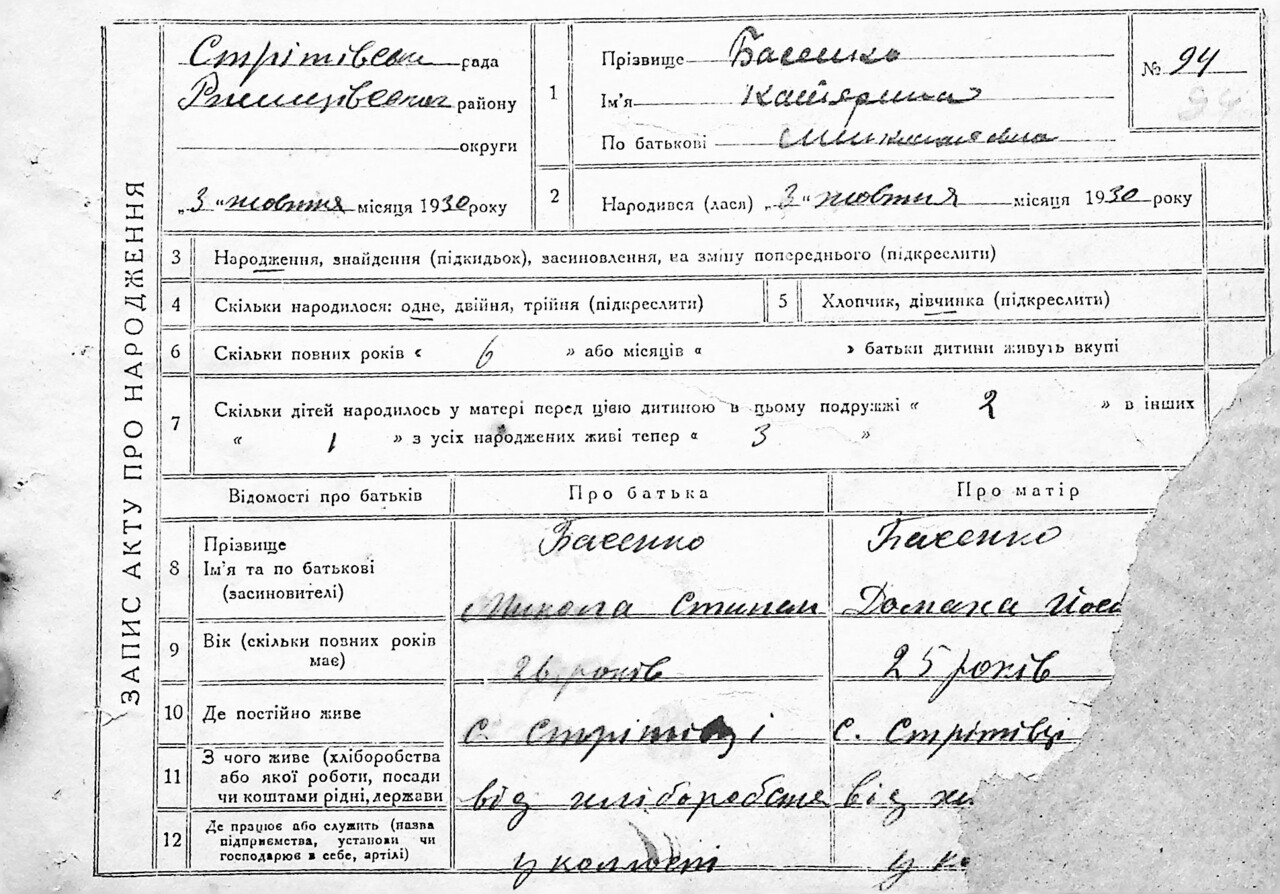 ЗАПИС АКТУ ПРО НАРОДЖЕННЯ
Стрітівська рада
району
округи
„3“ жовтня місяця 1930 року
1
Прізвище Басенко
Ім'я Катерина
По батькові Миколаївна
№ 94
94
2
Народився (лася) „3“ жовтня місяця 1930 року
3 Народження, знайдення (підкидьок), засиновлення, на зміну попереднього (підкреслити)
4 Скільки народилося: одне, двійня, трійня (підкреслити)
5 Хлопчик, дівчинка (підкреслити)
6 Скільки повних років « 6 » або місяців « » батьки дитини живуть вкупі
7 Скільки дітей народилось у матері перед цією дитиною в цьому подружжі « 2 » в інших
« 1 » з усіх народжених живі тепер « 3 »
Відомості про батьків
Про батька
Про матір
8 Прізвище
Ім'я та по батькові
(засиновителі)
Басенко
Микола
Басенко
Домаха
9 Вік (скільки повних років
має)
26 років
25 років
10 Де постійно живе
с. Стрітівці
с. Стрітівці
11 З чого живе (хліборобства
або якої роботи, посади
чи коштами рідні, держави
від хліборобства
від
12 Де працює або служить (назва
підприємства, установи чи
господарює в себе, артілі)
у колгоспі
у